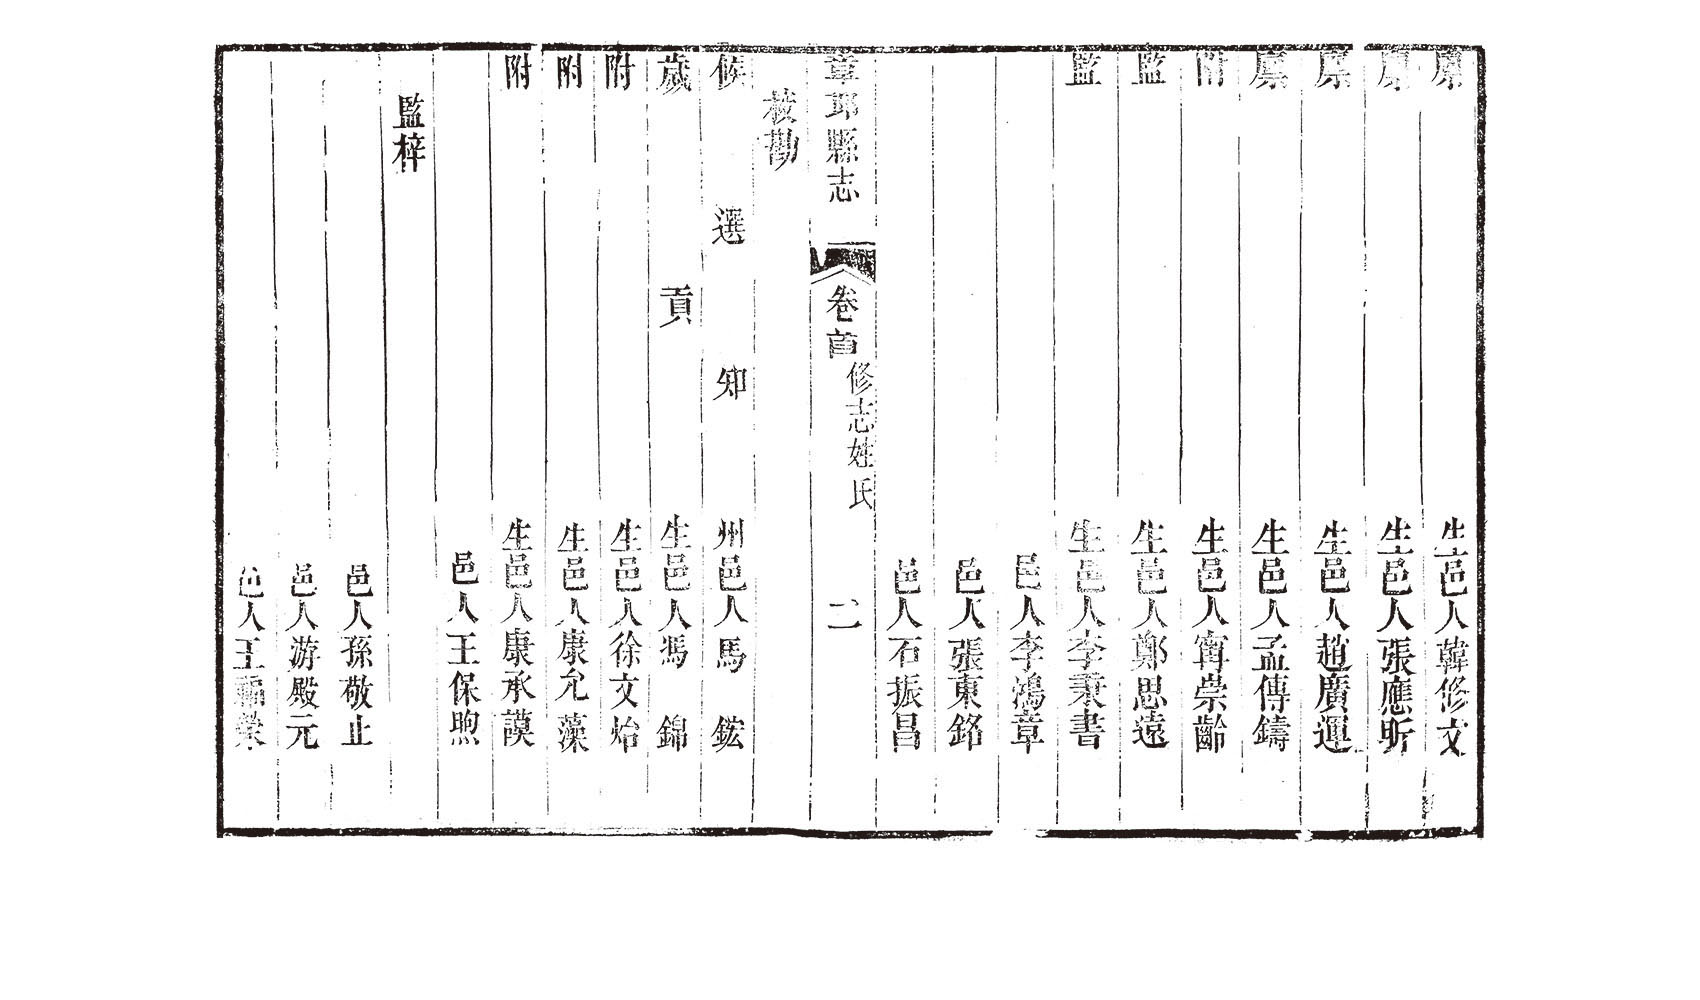 廩生邑人韓修文
廩生邑人張應昕
廩生邑人趙廣運
廩生邑人孟傳鑄
附生邑人甯崇齡
監生邑人鄭思遠
監生邑人李秉書
邑人李鴻章
邑人張東銘
邑人石振昌
章邱縣志
卷首
修志姓氏
二
校勘
候選知州邑人馬鋐
歲貢生邑人馮錦
附生邑人徐文炲
附生邑人康允藻
附生邑人康承謨
邑人王保煦
監梓
邑人孫敬止
邑人游殿元
邑人王福榮